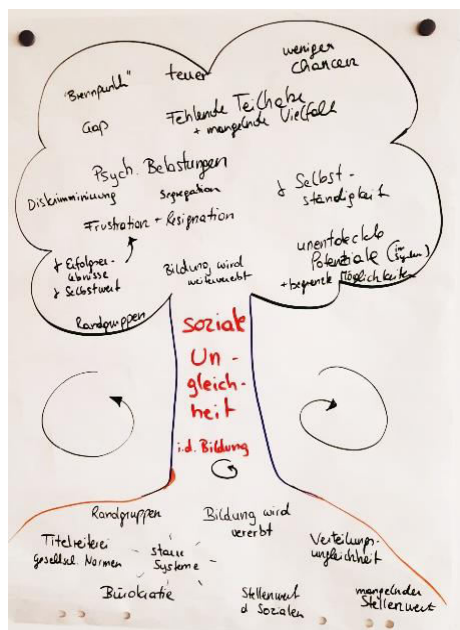 weniger
Chancen
teuer
"Brennpunkt"
Gap
Fehlende Teilhabe
+ mangelnde Vielfalt
Psych. Belastungen
Diskriminierung
Segregation
Frustration + Resignation
↓ Selbst-
ständigkeit
↓ Erfolgser-
lebnisse
↓ Selbstwert
Bildung wird
weitervererbt
unentdeckte
Potenziale (im System)
+ begrenzte Möglichkeiten
Randgruppen
soziale
Un-
gleich-
heit
i.d. Bildung
Randgruppen
Bildung wird
vererbt
Titelreiterei
gesellsch. Normen
starre
Systeme
Verteilungs-
ungleichheit
Bürokratie
Stellenwert
d Sozialen
mangelnder
Stellenwert